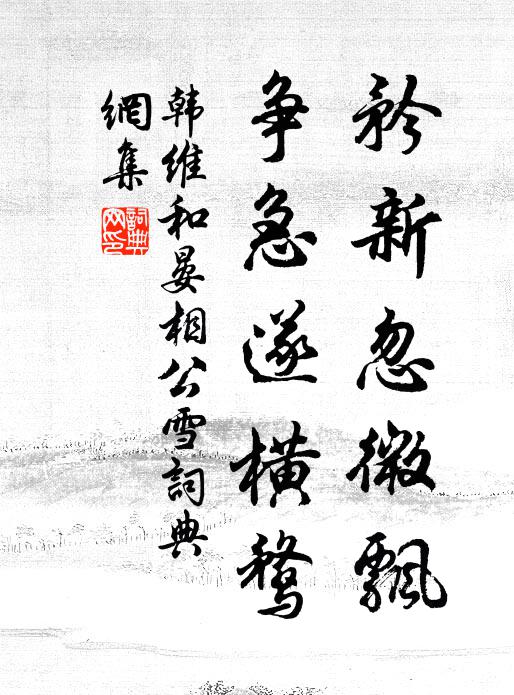 矜新忽微飄
争急遂橫鶩
韩維和晏相公雪詞典
網集
詞典网印